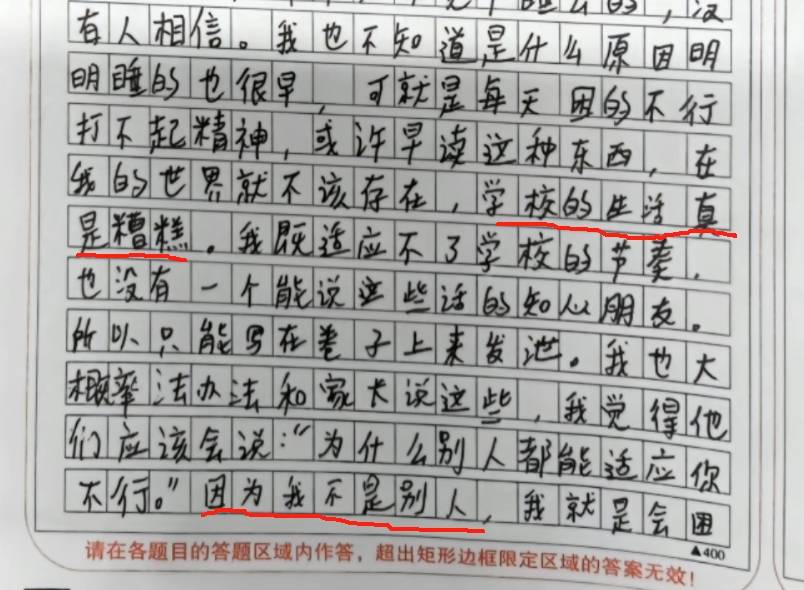 有人相信。我也不知道是什么原因明
明睡的也很早，可就是每天困的不行
打不起精神，或许早读这种东西，在
我的世界就不该存在，学校的生活真
是糟糕。我既适应不了学校的节奏．
也没有一个能说这些话的知心朋友。
所以只能写在卷子上来发泄。我也大
概率法办法和家长说这些，我觉得他
们应该会说：“为什么别人都能适应你
不行。”因为我不是别人，我就是会困
▲400
请在各题目的答题区域内作答，超出矩形边框限定区域的答案无效！